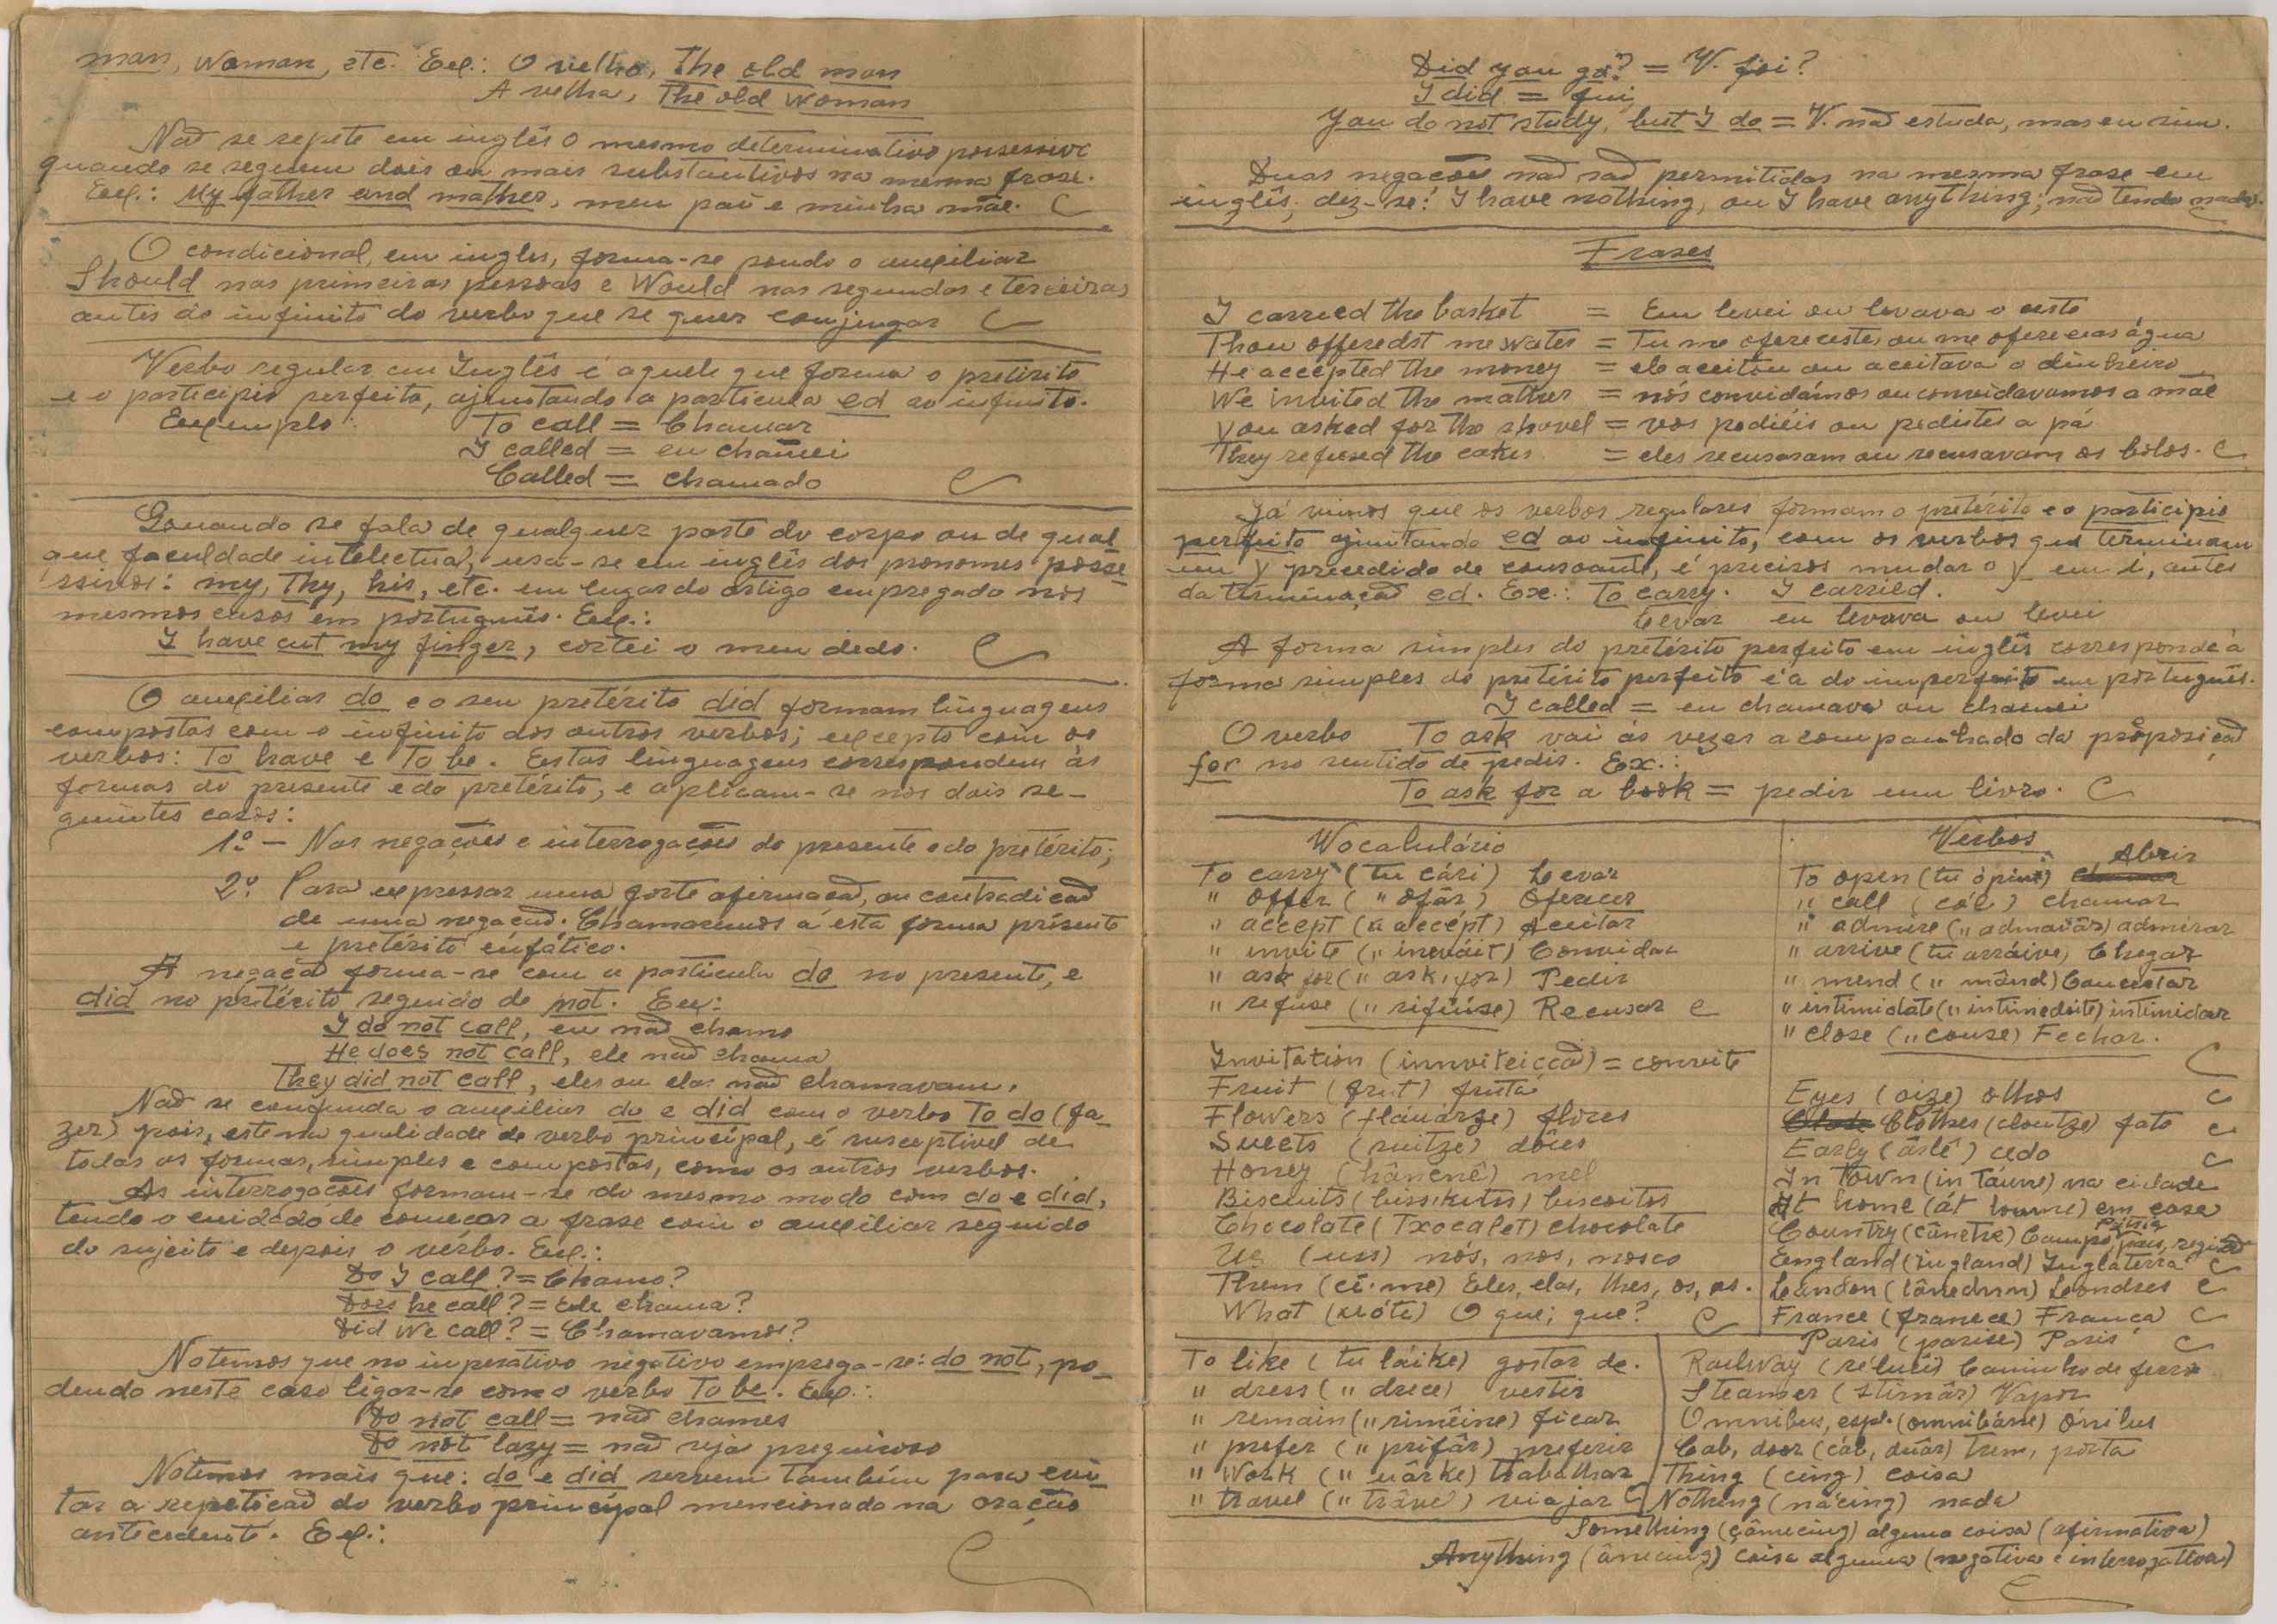 man, woman, etc. Ex.: O velho, The old man
A velha, The old woman
Não se repete em inglês o mesmo determinativo possessivo
quando se seguem dois ou mais substantivos na mesma frase.
Ex.: My father and mather, meu pai e minha mãe.
O condicional, em ingles, forma-se pondo o auxiliar
Should nas primeiras pessoas e Would nas segundas e terceiras
antes do infinito do verbo que se quer conjugar
Verbo regular em Inglês é aquele que forma o pretérito
e o participio perfeito, ajuntando a particula ed ao infinito.
Exemplo: To call = Chamar
I called = eu chamei
Called = chamado
Quando se fala de qualquer parte do corpo ou de qual-
que faculdade intelectual, usa-se em inglês dos pronomes posse-
ssivos: my, Thy, his, etc. em lugar do artigo empregado nos
mesmos casos em português. Ex.:
I have cut my finger, cortei o meu dedo.
O auxiliar do e o seu pretérito did formam linguagens
compostas com o infinito dos outros verbos; excepto com os
verbos: To have e To be. Estas linguagens correspondem às
formas do presente e do pretérito, e aplicam-se nos dois se-
guintes casos:
1º - Nas negações e interrogações do presente e do pretérito;
2º. Para expressar uma forte afirmação, ou contradição
de uma negação. Chamaremos a esta forma présente
e pretérito enfático.
A negação forma-se com a particula do no presente, e
did no pretérito seguido de not. Ex:
I do not call, eu não chamo
He does not call, ele não chama
They did not call, eles ou elas não chamavam.
Não se confunda o auxiliar do e did com o verbo To do (fa-
zer) pois, este na qualidade de verbo principal, é susceptivel de
todas as formas, simples e compostas, como os outros verbos.
As interrogações formam-se do mesmo modo com do e did,
tendo o cuidado de começar a frase com o auxiliar seguido
do sujeito e depois o verbo. Ex.:
Do I call? = Chamo?
Does he call? = Ele chama?
Did We call? = Chamavamos?
Notemos que no imperativo negativo emprega-se: do not, po-
dendo neste caso ligar-se com o verbo To be. Ex.:
Do not call = não chames
Do not lazy = não seja preguiçoso
Notemos mais que: do e did servem também para evi-
tar a repetição do verbo principal mencionado na oração
antecedente. Ex.:
Did you go? = V. foi?
I did = fui
You do not study, but I do = V. não estuda, mas eu sim.
Duas negações não são permitidas na mesma frase em
inglês; diz-se: I have nothing, ou I have anything; não tendo nada.
Frases
I carried the basket = Eu levei ou levava o cesto
Thou offeredst me water = Tu me ofereceste, ou me oferecias água
He accepted the money = ele aceitou ou aceitava o dinheiro
We invited the mather = nós convidámos ou convidavamos a mãe
You asked for the shovel = vos pedieis ou pedistes a pá
They refused the cakes = eles recusaram ou recusavam os bolos.
Já vimos que os verbos regulares formam o pretérito e o participio
perfeito ajuntando ed ao infinito, com os verbos que terminam
em y precedido de consoante, é preciso mudar o y em i, antes
da terminação ed. Ex.: To carry. I carried.
Levar eu levava ou levei
A forma simples do pretérito perfeito em inglês corresponde à
forma simples do pretérito perfeito e à do imperfeito em português.
I called = eu chamava ou chamei
O verbo To ask vai ás vezes acompanhado da preposição
for no sentido de pedir. Ex.:
To ask for a book = pedir um livro.
Wocabulário
To carry (tu cári) Levar
" offer (" ofâr) Oferecer
" accept (" accépt) Aceitar
" invite (" inváit) Convidar
" ask for (" ask, för) Pedir
" refuse (" rifiúse) Recusar
Invitation (innviteiccão) = convite
Fruit (frut) fruta
Flowers (fláuarze) flores
Sweets (suitze) dôces
Honey (hânenê) mel
Biscuits (bissikuts) biscoitos
Chocolate (Txocalet) chocolate
Us (uss) nós, nos, nosco
Them (ci.me) Eles, elas, lhes, os, as.
What (uóte) O que; que?
Verbos
To open (tu ópine) Abrir
" call (cól) chamar
" admire (" admaiâr) admirar
" arrive (tu arráive) Chegar
" mend (" mênd) Concertar
" intimidate (" intimedeite) intimidar
" close (" couse) Fechar.
Eyes (aize) olhos
Clothes (cloutze) fato
Early (ârlê) cedo
In Town (in Táune) na cidade
At home (át houme) em casa
Country (cântre) Campo, país, região
England (Ingland) Inglaterra
London (lânednn) Londres
France (franece) França
Paris (parise) Paris
To like (tu láike) gostar de.
" dress (" drece) vestir
" remain (" rimêine) ficar
" prefer (" prifâr) preferir
" Work (" uârke) trabalhar
" travel (" trável) viajar
Railway (réluêi) Caminho de ferro
Steamer (stimâr) Vapor
Omnibus, (omnibâsse) ónibus
Cab, door (cab, duâr) trem, porta
Thing (cing) coisa
Nothing (nácing) nada
Something (çâmecing) alguma coisa (afirmativa)
Anything (ânecing) coisa alguma (negativa e interrogativa)